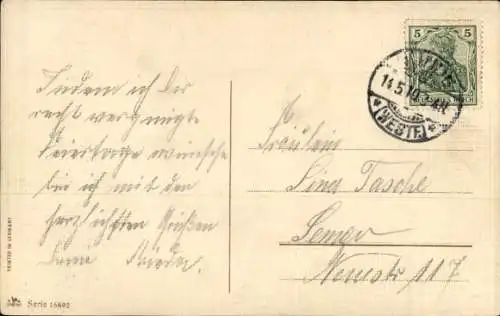 5 5
14.5.10
*(WESTF.)*
Indem ich Dir
recht vergnügte
Feiertage wünsche
bin ich mit den
herzlichsten Grüßen
Fräulein
Lina Tasche
Lemgo
Neuestr 117
PRINTED IN GERMANY
Serie 16892